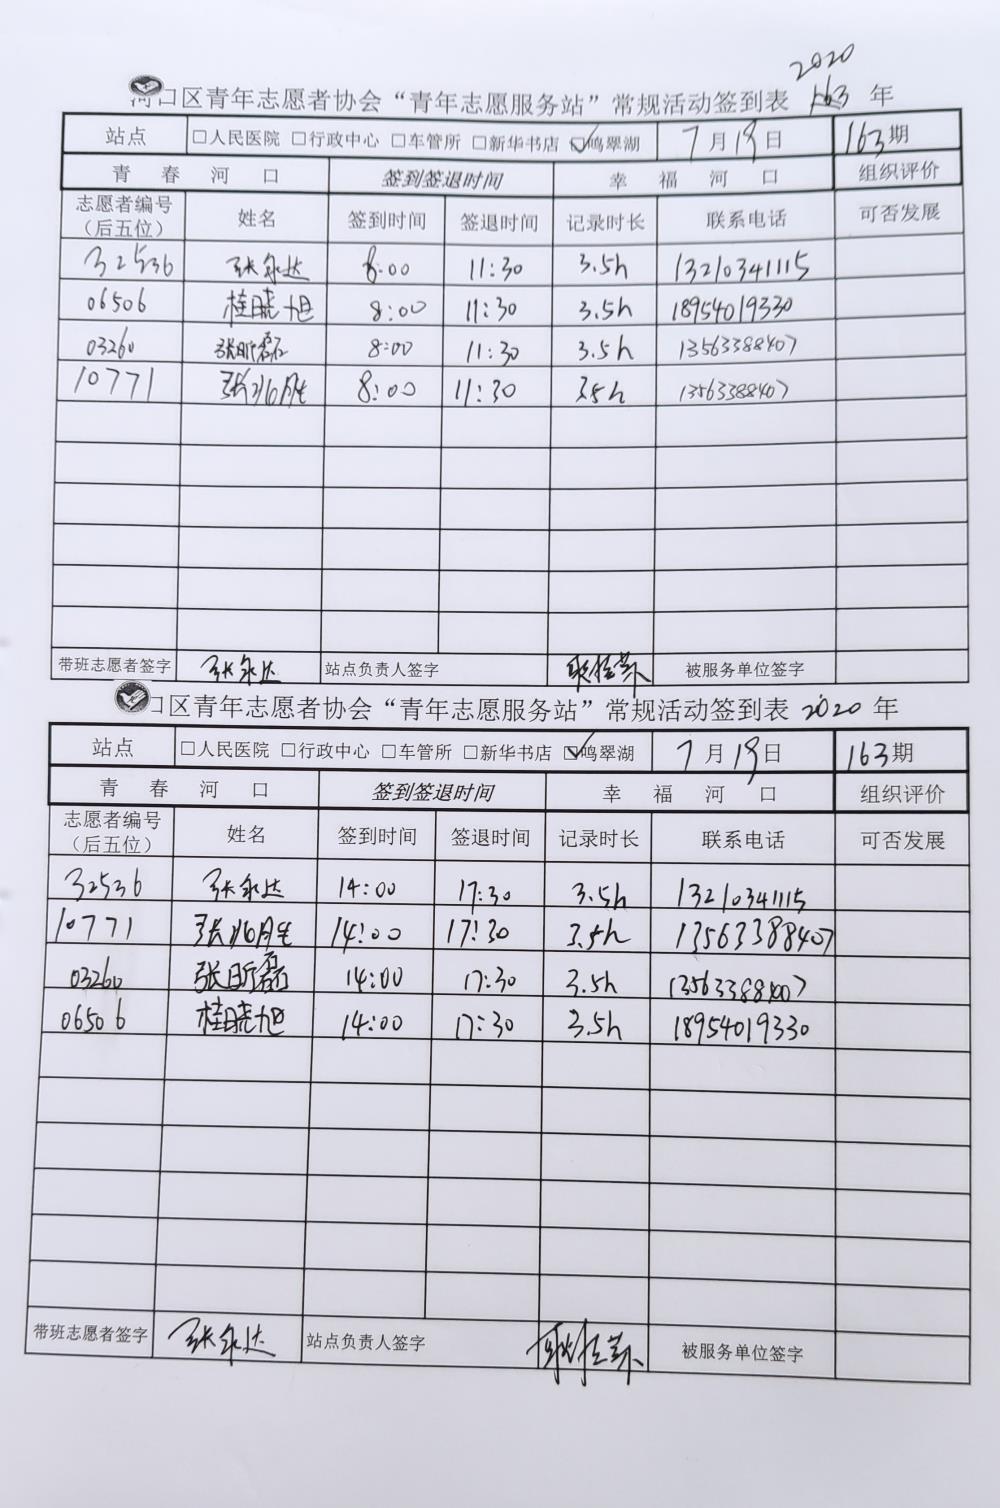 2020
河口区青年志愿者协会“青年志愿服务站”常规活动签到表 年
站点 □人民医院 □行政中心 □车管所 □新华书店 ☑鸣翠湖 7月19日 163期
青春河口 签到签退时间 幸福河口 组织评价
志愿者编号（后五位） 姓名 签到时间 签退时间 记录时长 联系电话 可否发展
32536 张永达 8:00 11:30 3.5h 13210341115
06506 桂晓旭 8:00 11:30 3.5h 18954019330
03260 张昕磊 8:00 11:30 3.5h 13563388407
10771 张 8:00 11:30 3.5h 13563388407
带班志愿者签字 张永达 站点负责人签字 被服务单位签字
口区青年志愿者协会“青年志愿服务站”常规活动签到表 2020 年
站点 □人民医院 □行政中心 □车管所 □新华书店 ☑鸣翠湖 7月19日 163期
青春河口 签到签退时间 幸福河口 组织评价
志愿者编号（后五位） 姓名 签到时间 签退时间 记录时长 联系电话 可否发展
32536 张永达 14:00 17:30 3.5h 13210341115
10771 张 14:00 17:30 3.5h 13563388407
03260 张昕磊 14:00 17:30 3.5h 13563388407
06506 桂晓旭 14:00 17:30 3.5h 18954019330
带班志愿者签字 张永达 站点负责人签字 被服务单位签字